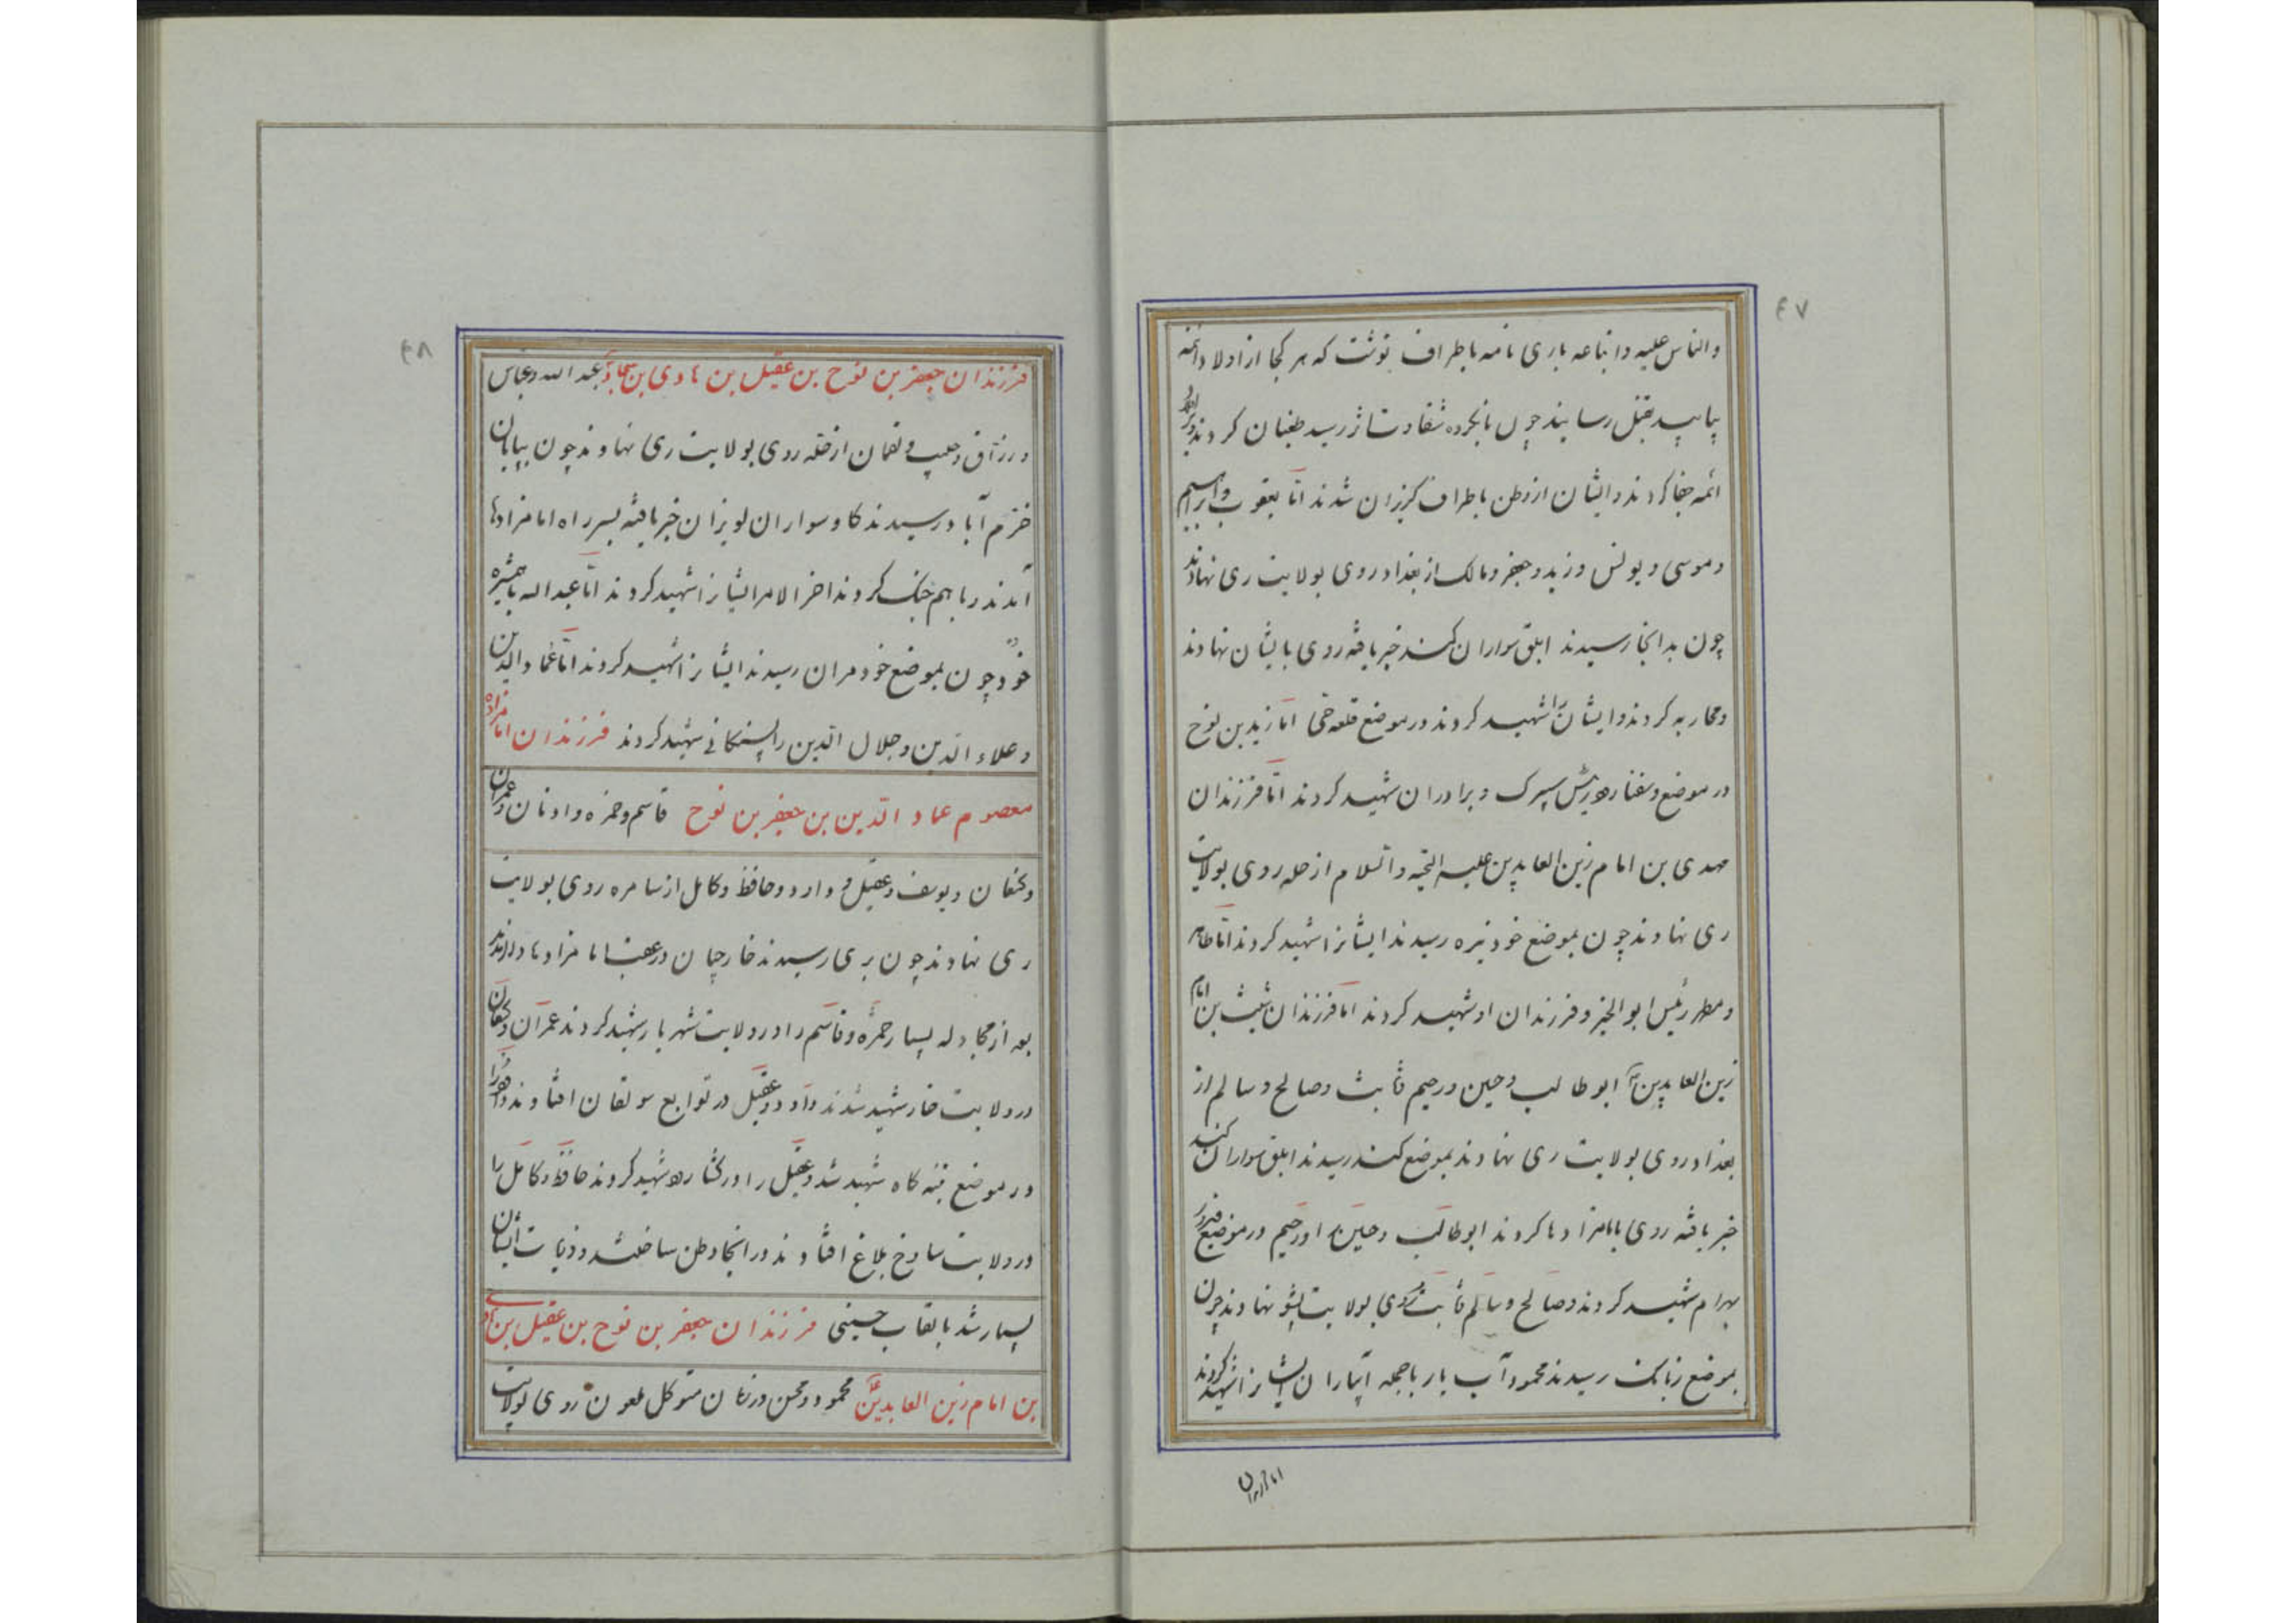 ۴۷
والناس علیه و اتباعه باری نامه باطراف نوشت که هر کجا از اولاد ائمه
بیابید بقتل رسانید چون نابخرده شقاوت رسید طغیان کردند
ائمه جفا کردند و ایشان از وطن باطراف گریزان شدند امّا یعقوب و ابراهیم
و موسی و یونس و زید و جعفر و مالک از بغداد روی بولایت ری نهادند
چون بدانجا رسیدند ابلق سواران کند خبر یافته روی بایشان نهادند
و محاربه کردند و ایشان را شهید کردند در موضع قلعه امّا زید بن نوح
در موضع سپرک و برادران شهید کردند امّا فرزندان
مهدی بن امام زین العابدین علیه التحیه والسلام از حله روی بولایت
ری نهادند چون بموضع خود نیره رسیدند ایشانرا شهید کردند امّا طاهر
و مطهر رئیس ابوالخیر و فرزندان او شهید کردند امّا فرزندان شیث بن امام
زین العابدین ابوطالب و حین و رحیم ثابت و صالح و سالم از
بغداد روی بولایت ری نهادند بموضع کند رسیدند ابلق سواران کند
خبر یافته روی بامامزادها کردند ابوطالب و حین را و رحیم در موضع فیروز
بهرام شهید کردند و صالح و سالم ثابت روی بولایت پشو نهادند چون
بموضع زناکت رسیدند محمود آب بار باجمه ایشانرا شهید کردند
۴۸
فرزندان جعفر بن نوح بن عقیل بن هادی بن سجاد عبد الله و عباس
و رزّاق و حبیب و نعمان از حله روی بولایت ری نهادند چون بیابان
خرّم آباد رسیدند کاوسواران لویزان خبر یافته بسر راه امامزادها
آمدند و با هم جنگ کردند اخر الامر ایشانرا شهید کردند امّا عبد اله با همشیره
خود چون بموضع خود مران رسیدند ایشانرا شهید کردند امّا عماد الدین
و علاء الدین و جلال الدین را پسنکانی شهید کردند فرزندان امامزاده
معصوم عماد الدین بن جعفر بن نوح قاسم و حمزه و ادنان و عمران
و کنعان و یوسف و عقیل و وارد و حافظ و کامل از سامره روی بولایت
ری نهادند چون بری رسیدند خارجیان در عقب امامزادها در آمدند
بعد از مجادله بسیار حمزه و قاسم را در ولایت شهریار شهید کردند عمران و کنعان
در ولایت خار شهید شدند داود و عقیل در توابع سولقان افتادند
در موضع بنه گاه شهید شد و عقیل را در کشار شهید کردند حافظ و کامل را
در ولایت ساوخ بلاغ افتادند در آنجا وطن ساختند و ذریات ایشان
بسیار شد بالقاب حسینی فرزندان جعفر بن نوح بن عقیل بن هادی
بن امام زین العابدین محمود و محسن در زمان متوکل ملعون روی بولایت